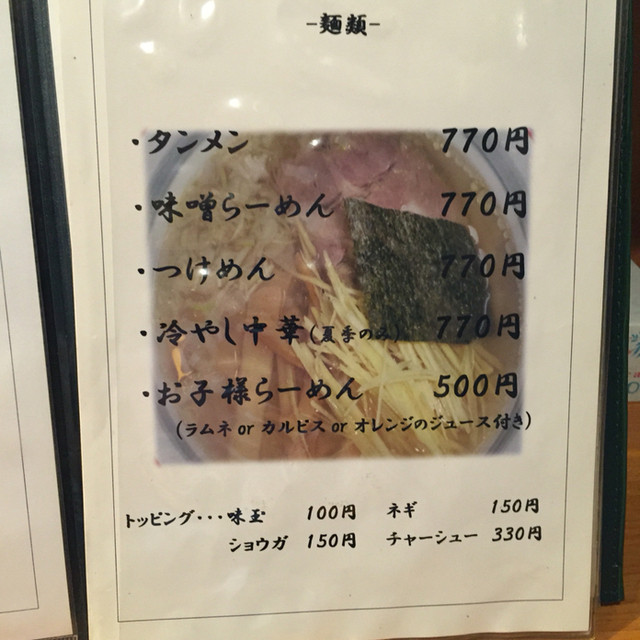 -麺類-
・タンメン 770円
・味噌らーめん 770円
・つけめん 770円
・冷やし中華(夏季のみ) 770円
・お子様らーめん 500円
(ラムネ or カルピス or オレンジのジュース付き)
トッピング・・・味玉 100円 ネギ 150円
ショウガ 150円 チャーシュー 330円